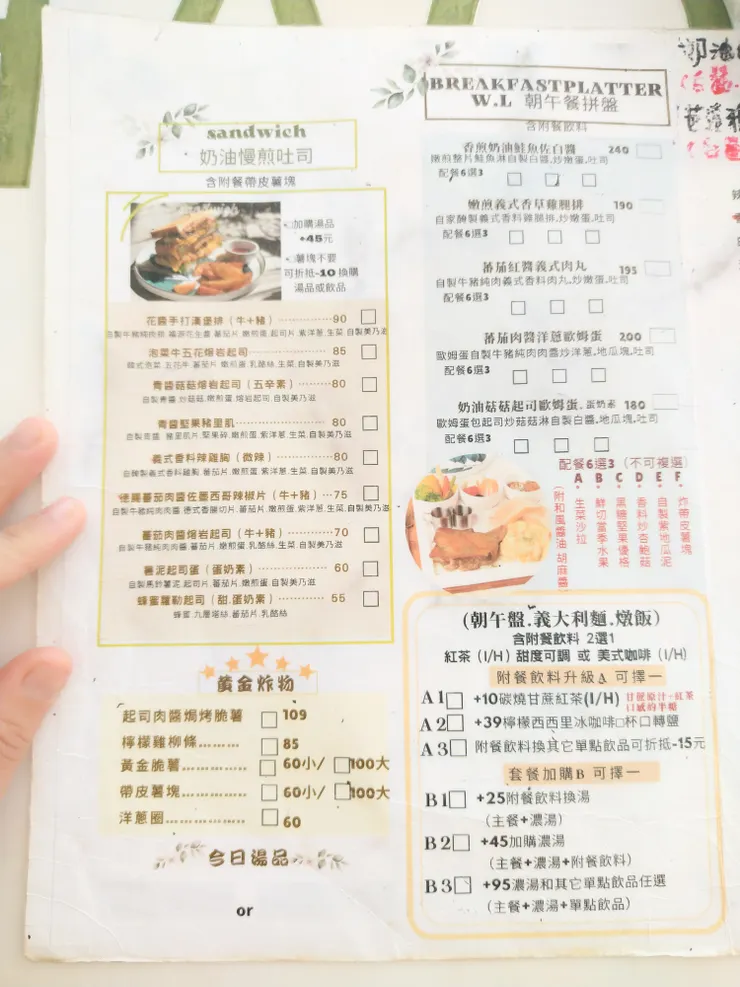 sandwich
奶油慢煎吐司
含附餐帶皮薯塊
加購湯品
+45元
薯塊不要
可折抵-10 換購
湯品或飲品
花醬手打漢堡排（牛+豬）············90 □
泡菜牛五花熔岩起司················85 □
韓式泡菜.五花牛.蕃茄片.嫩煎蛋.乳酪絲.生菜.自製美乃滋
青醬菇菇熔岩起司（五辛素）········80 □
自製青醬.炒菇菇.嫩煎蛋.熔岩起司.自製美乃滋
青醬堅果豬里肌····················80 □
自製青醬.豬里肌片.堅果碎.嫩煎蛋.紫洋蔥.生菜.自製美乃滋
義式香料辣雞胸（微辣）············80 □
自醃製義式香料雞胸.蕃茄片.嫩煎蛋.紫洋蔥.生菜.自製美乃滋
德腸蕃茄肉醬佐墨西哥辣椒片（牛+豬）···75 □
自製牛豬純肉肉醬.德式香腸切片.蕃茄片.嫩煎蛋.紫洋蔥.生菜.自製美乃滋
蕃茄肉醬熔岩起司（牛+豬）·········70 □
自製牛豬純肉肉醬.蕃茄片.嫩煎蛋.乳酪絲.生菜.自製美乃滋
薯泥起司蛋（蛋奶素）··············60 □
自製馬鈴薯泥.起司片.蕃茄片.嫩煎蛋.自製美乃滋
蜂蜜羅勒起司（甜.蛋奶素）·········55 □
蜂蜜.九層塔絲.蕃茄片.乳酪絲
黃金炸物
起司肉醬焗烤脆薯 □ 109
檸檬雞柳條......... □ 85
黃金脆薯............ □ 60小/ □100大
帶皮薯塊............ □ 60小/ □100大
洋蔥圈............... □ 60
今日湯品
or
BREAKFASTPLATTER
W.L 朝午餐拼盤
含附餐飲料
香煎奶油鮭魚佐白醬 240
嫩煎整片鮭魚淋自製白醬.炒嫩蛋.吐司
配餐6選3 □ □ □
嫩煎義式香草雞腿排 190
自家醃製義式香料雞腿排.炒嫩蛋.吐司
配餐6選3 □ □ □
蕃茄紅醬義式肉丸 195
自製牛豬純肉義式香料肉丸.炒嫩蛋.吐司
配餐6選3 □ □ □
蕃茄肉醬洋蔥歐姆蛋 200
歐姆蛋自製牛豬純肉肉醬炒洋蔥.地瓜塊.吐司
配餐6選3 □ □ □
奶油菇菇起司歐姆蛋.蛋奶素 180
歐姆蛋包起司炒菇菇淋自製白醬.地瓜塊.吐司
配餐6選3 □ □ □
配餐6選3（不可複選）
A B C D E F
生菜沙拉（附和風醬油胡麻醬）
鮮切當季水果
黑糖堅果優格
香料炒杏鮑菇
自製紫地瓜泥
炸帶皮薯塊
(朝午盤.義大利麵.燉飯)
含附餐飲料 2選1
紅茶（I/H）甜度可調 或 美式咖啡（I/H）
附餐飲料升級A 可擇一
A1□ +10碳燒甘蔗紅茶(I/H) 甘蔗原汁+紅茶
口感約半糖
A2□ +39檸檬西西里冰咖啡□杯口轉鹽
A3□ 附餐飲料換其它單點飲品可折抵-15元
套餐加購B 可擇一
B1□ +25附餐飲料換湯
（主餐+濃湯）
B2□ +45加購濃湯
（主餐+濃湯+附餐飲料）
B3□ +95濃湯和其它單點飲品任選
（主餐+濃湯+單點飲品）